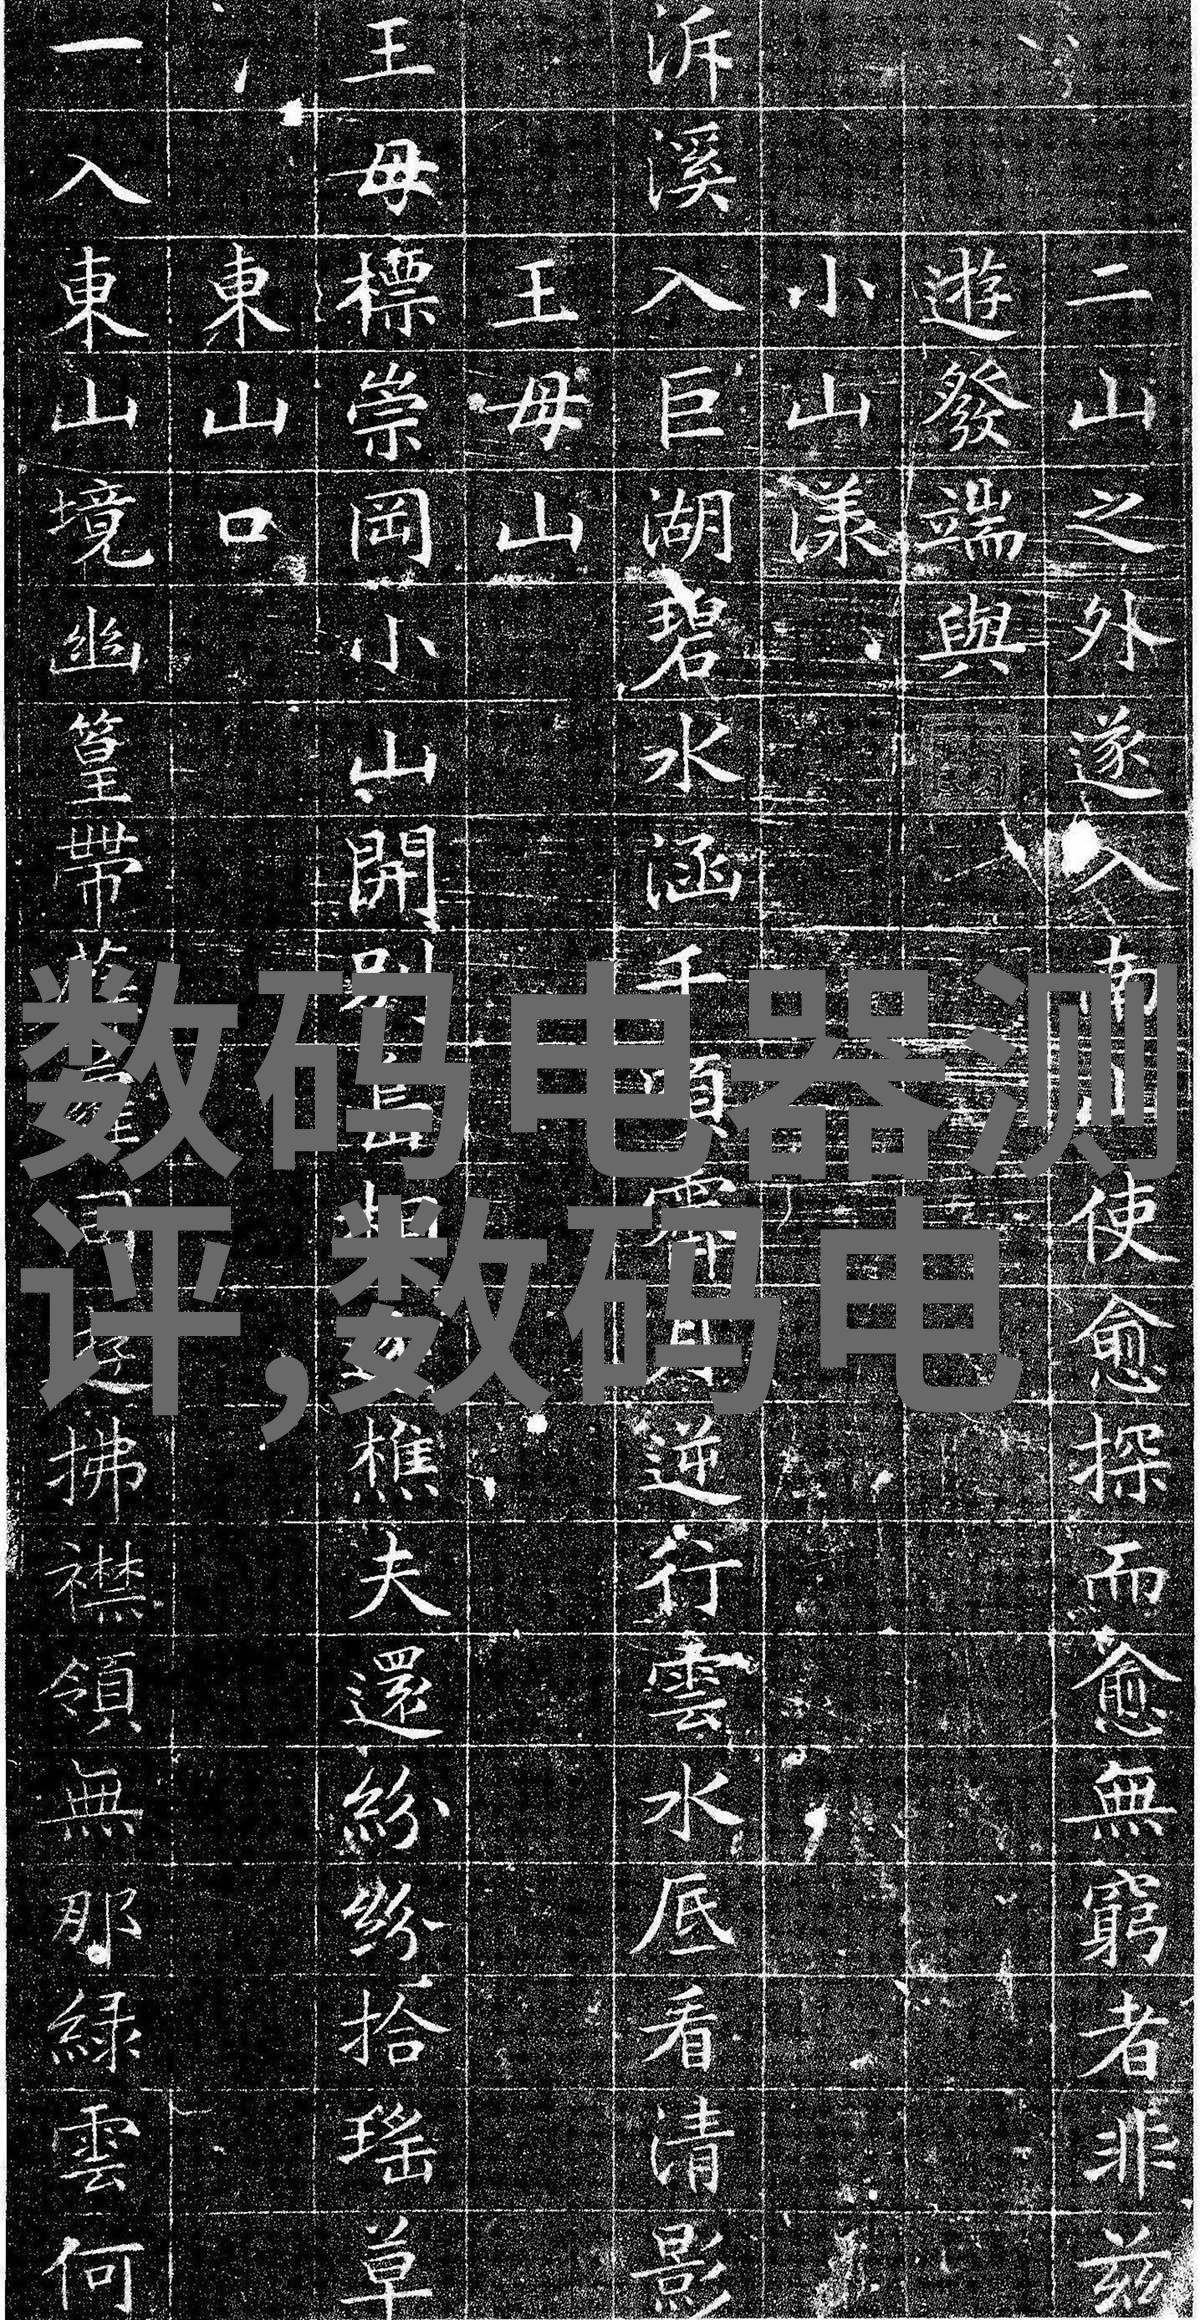 二山之外遂入南山使愈探而愈無窮者非茲
遊發端與
小山漾
泝溪入巨湖碧水涵千頃霽月逆行雲水底看清影
王毋山
王毋標崇岡小山開別島相逢樵夫還紛紛拾瑤草
東山口
一入東山境幽篁帶 拂襟領無那緑雲何
数码电器测
评,数码电